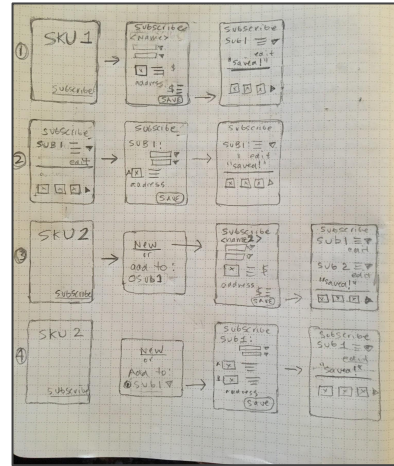 ①
SKU 1
Subscribe
Subscribe
<Name>
x $
address
$
SAVE
Subscribe
Sub1
edit
"Saved!"
x x x
②
Subscribe
SUB1:
edit
x x x
Subscribe
SUB1:
A x
address
SAVE
Subscribe
SUB1:
edit
"saved!"
x x x
③
SKU 2
Subscribe
New
or
add to:
O Sub1
Subscribe
<name2>
x $
address
$
SAVE
Subscribe
Sub 1
edit
Sub 2
edit
"Saved!"
x x x
④
SKU 2
Subscribe
New
or
Add to:
Sub1
Subscribe
Sub1:
A x
B x
address
Save
Subscribe
Sub 1
edit
"Saved!"
x x x